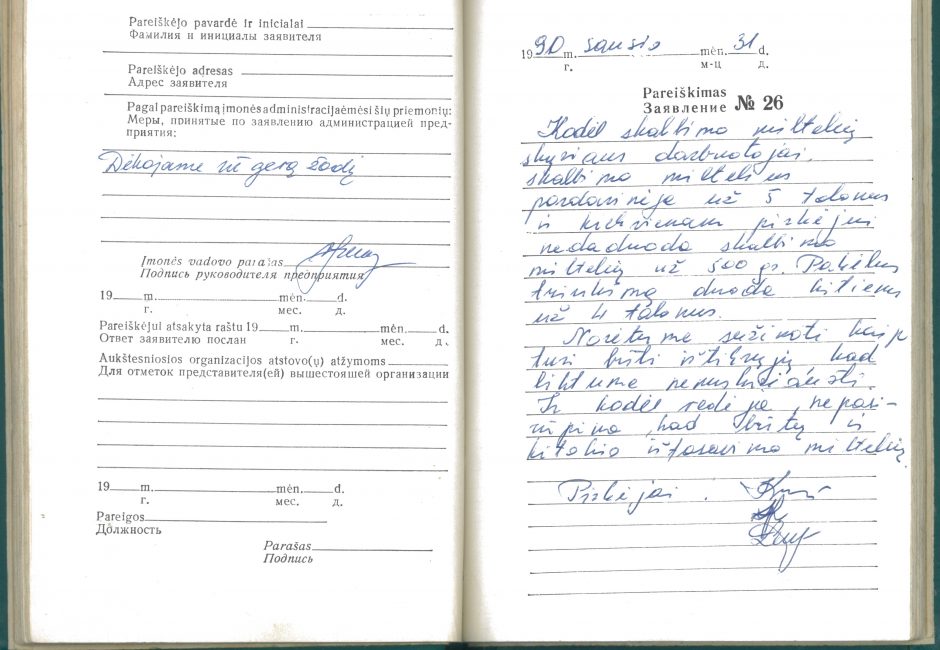 Pareiškėjo pavardė ir inicialai
Фамилия и инициалы заявителя
Pareiškėjo adresas
Адрес заявителя
Pagal pareiškimą įmonės administracija ėmėsi šių priemonių:
Меры, принятые по заявлению администрацией пред-
приятия:
Dėkojame už gerą žodį
Įmonės vadovo parašas
Подпись руководителя предприятия
19 m. mėn. d.
г. мес. д.
Pareiškėjui atsakyta raštu 19 m. mėn. d.
Ответ заявителю послан г. мес. д.
Aukštesniosios organizacijos atstovo(ų) atžymoms
Для отметок представителя(ей) вышестоящей организации
19 m. mėn. d.
г. мес. д.
Pareigos
Должность
Parašas
Подпись
1990 m. sausio mėn. 31 d.
г. м-ц д.
Pareiškimas
Заявление № 26
Kodėl skalbimo miltelių
skyriaus darbuotojai,
skalbimo miltelius
pardavinėja už 5 talonus
ir kiekvienam pirkėjui
nedaduoda skalbimo
miltelių už 500 gr. Pakėlus
triukšmą duoda kitiems
už 4 talonus.
Norėtume sužinoti kaip
turi būti ištikrųjų kad
liktume nenuskriausti.
Ir kodėl vedėja nepasi-
rūpina, kad būtų ir
kitokio išfasavimo miltelių.
Pirkėjai: